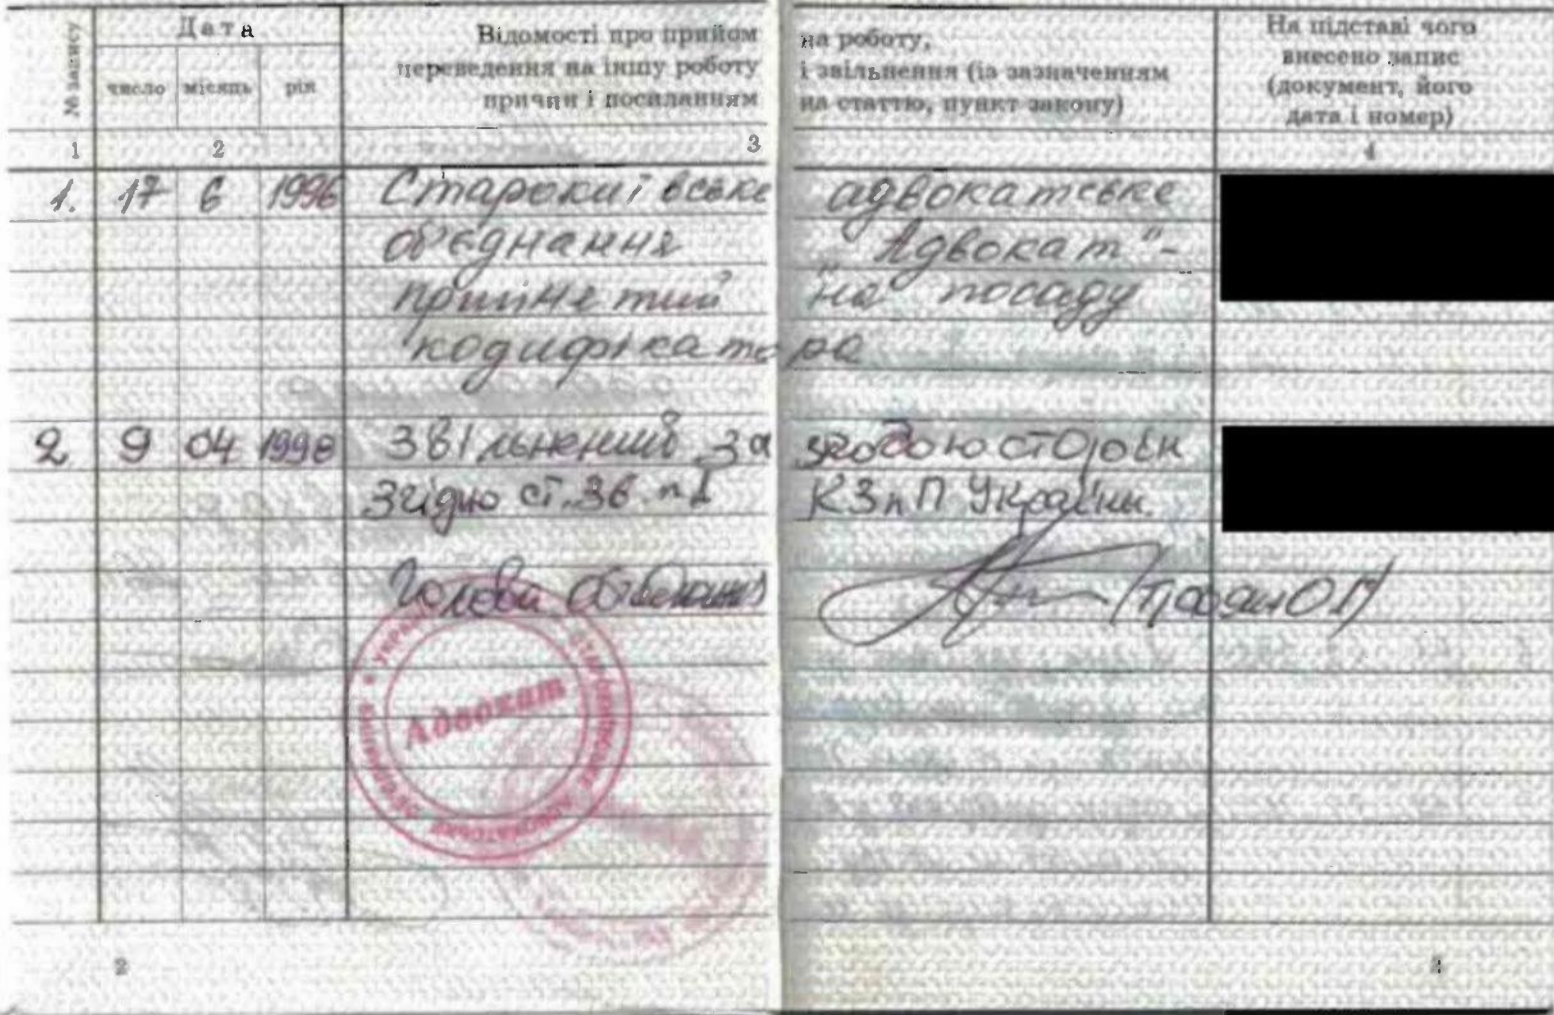 № запису
Дата
число місяць рік
Відомості про прийом на роботу,
переведення на іншу роботу і звільнення (із зазначенням
причин і посиланням на статтю, пункт закону)
На підставі чого
внесено запис
(документ, його
дата і номер)
1 2 3 4
1. 17 6 1996 Старокиївське адвокатське
об'єднання „Адвокат"-
прийнятий на посаду
кодифікатора
2 9 04 1998 Звільнений за згодою сторін
Згідно ст. 36 п I КЗпП України.
Голова об'єднання
Адвокат
2